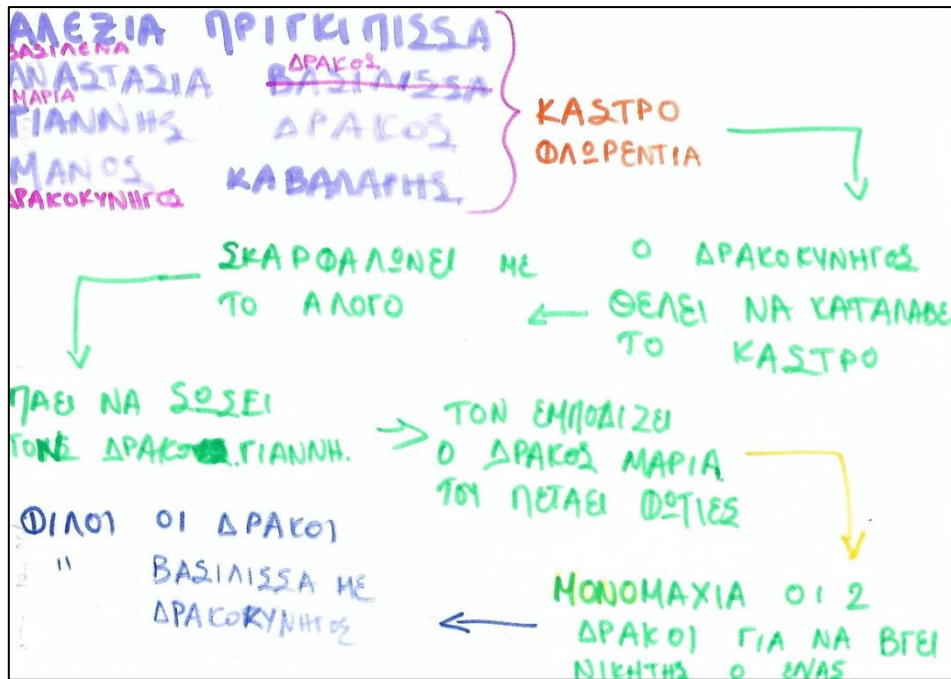 ΑΛΕΞΙΑ ΠΡΙΓΚΙΠΙΣΣΑ
ΒΑΣΙΛΕΝΑ
ΔΡΑΚΟΣ
ΑΝΑΣΤΑΣΙΑ ΒΑΣΙΛΙΣΣΑ
ΜΑΡΙΑ
ΓΙΑΝΝΗΣ ΔΡΑΚΟΣ
ΜΑΝΟΣ ΚΑΒΑΛΑΡΗΣ
ΔΡΑΚΟΚΥΝΗΓΟΣ
ΚΑΣΤΡΟ
ΦΛΩΡΕΝΤΙΑ
Ο ΔΡΑΚΟΚΥΝΗΓΟΣ
ΘΕΛΕΙ ΝΑ ΚΑΤΑΛΑΒΕ
ΤΟ ΚΑΣΤΡΟ
ΣΚΑΡΦΑΛΩΝΕΙ ΜΕ
ΤΟ ΑΛΟΓΟ
ΠΑΕΙ ΝΑ ΣΩΣΕΙ
ΤΟΝ ΔΡΑΚΟ ΓΙΑΝΝΗ.
ΤΟΝ ΕΜΠΟΔΙΖΕΙ
Ο ΔΡΑΚΟΣ ΜΑΡΙΑ
ΤΟΥ ΠΕΤΑΕΙ ΦΩΤΙΕΣ
ΜΟΝΟΜΑΧΙΑ ΟΙ 2
ΔΡΑΚΟΙ ΓΙΑ ΝΑ ΒΓΕΙ
ΝΙΚΗΤΗΣ Ο ΕΝΑΣ
ΦΙΛΟΙ ΟΙ ΔΡΑΚΟΙ
" ΒΑΣΙΛΙΣΣΑ ΜΕ
ΔΡΑΚΟΚΥΝΗΓΟΣ